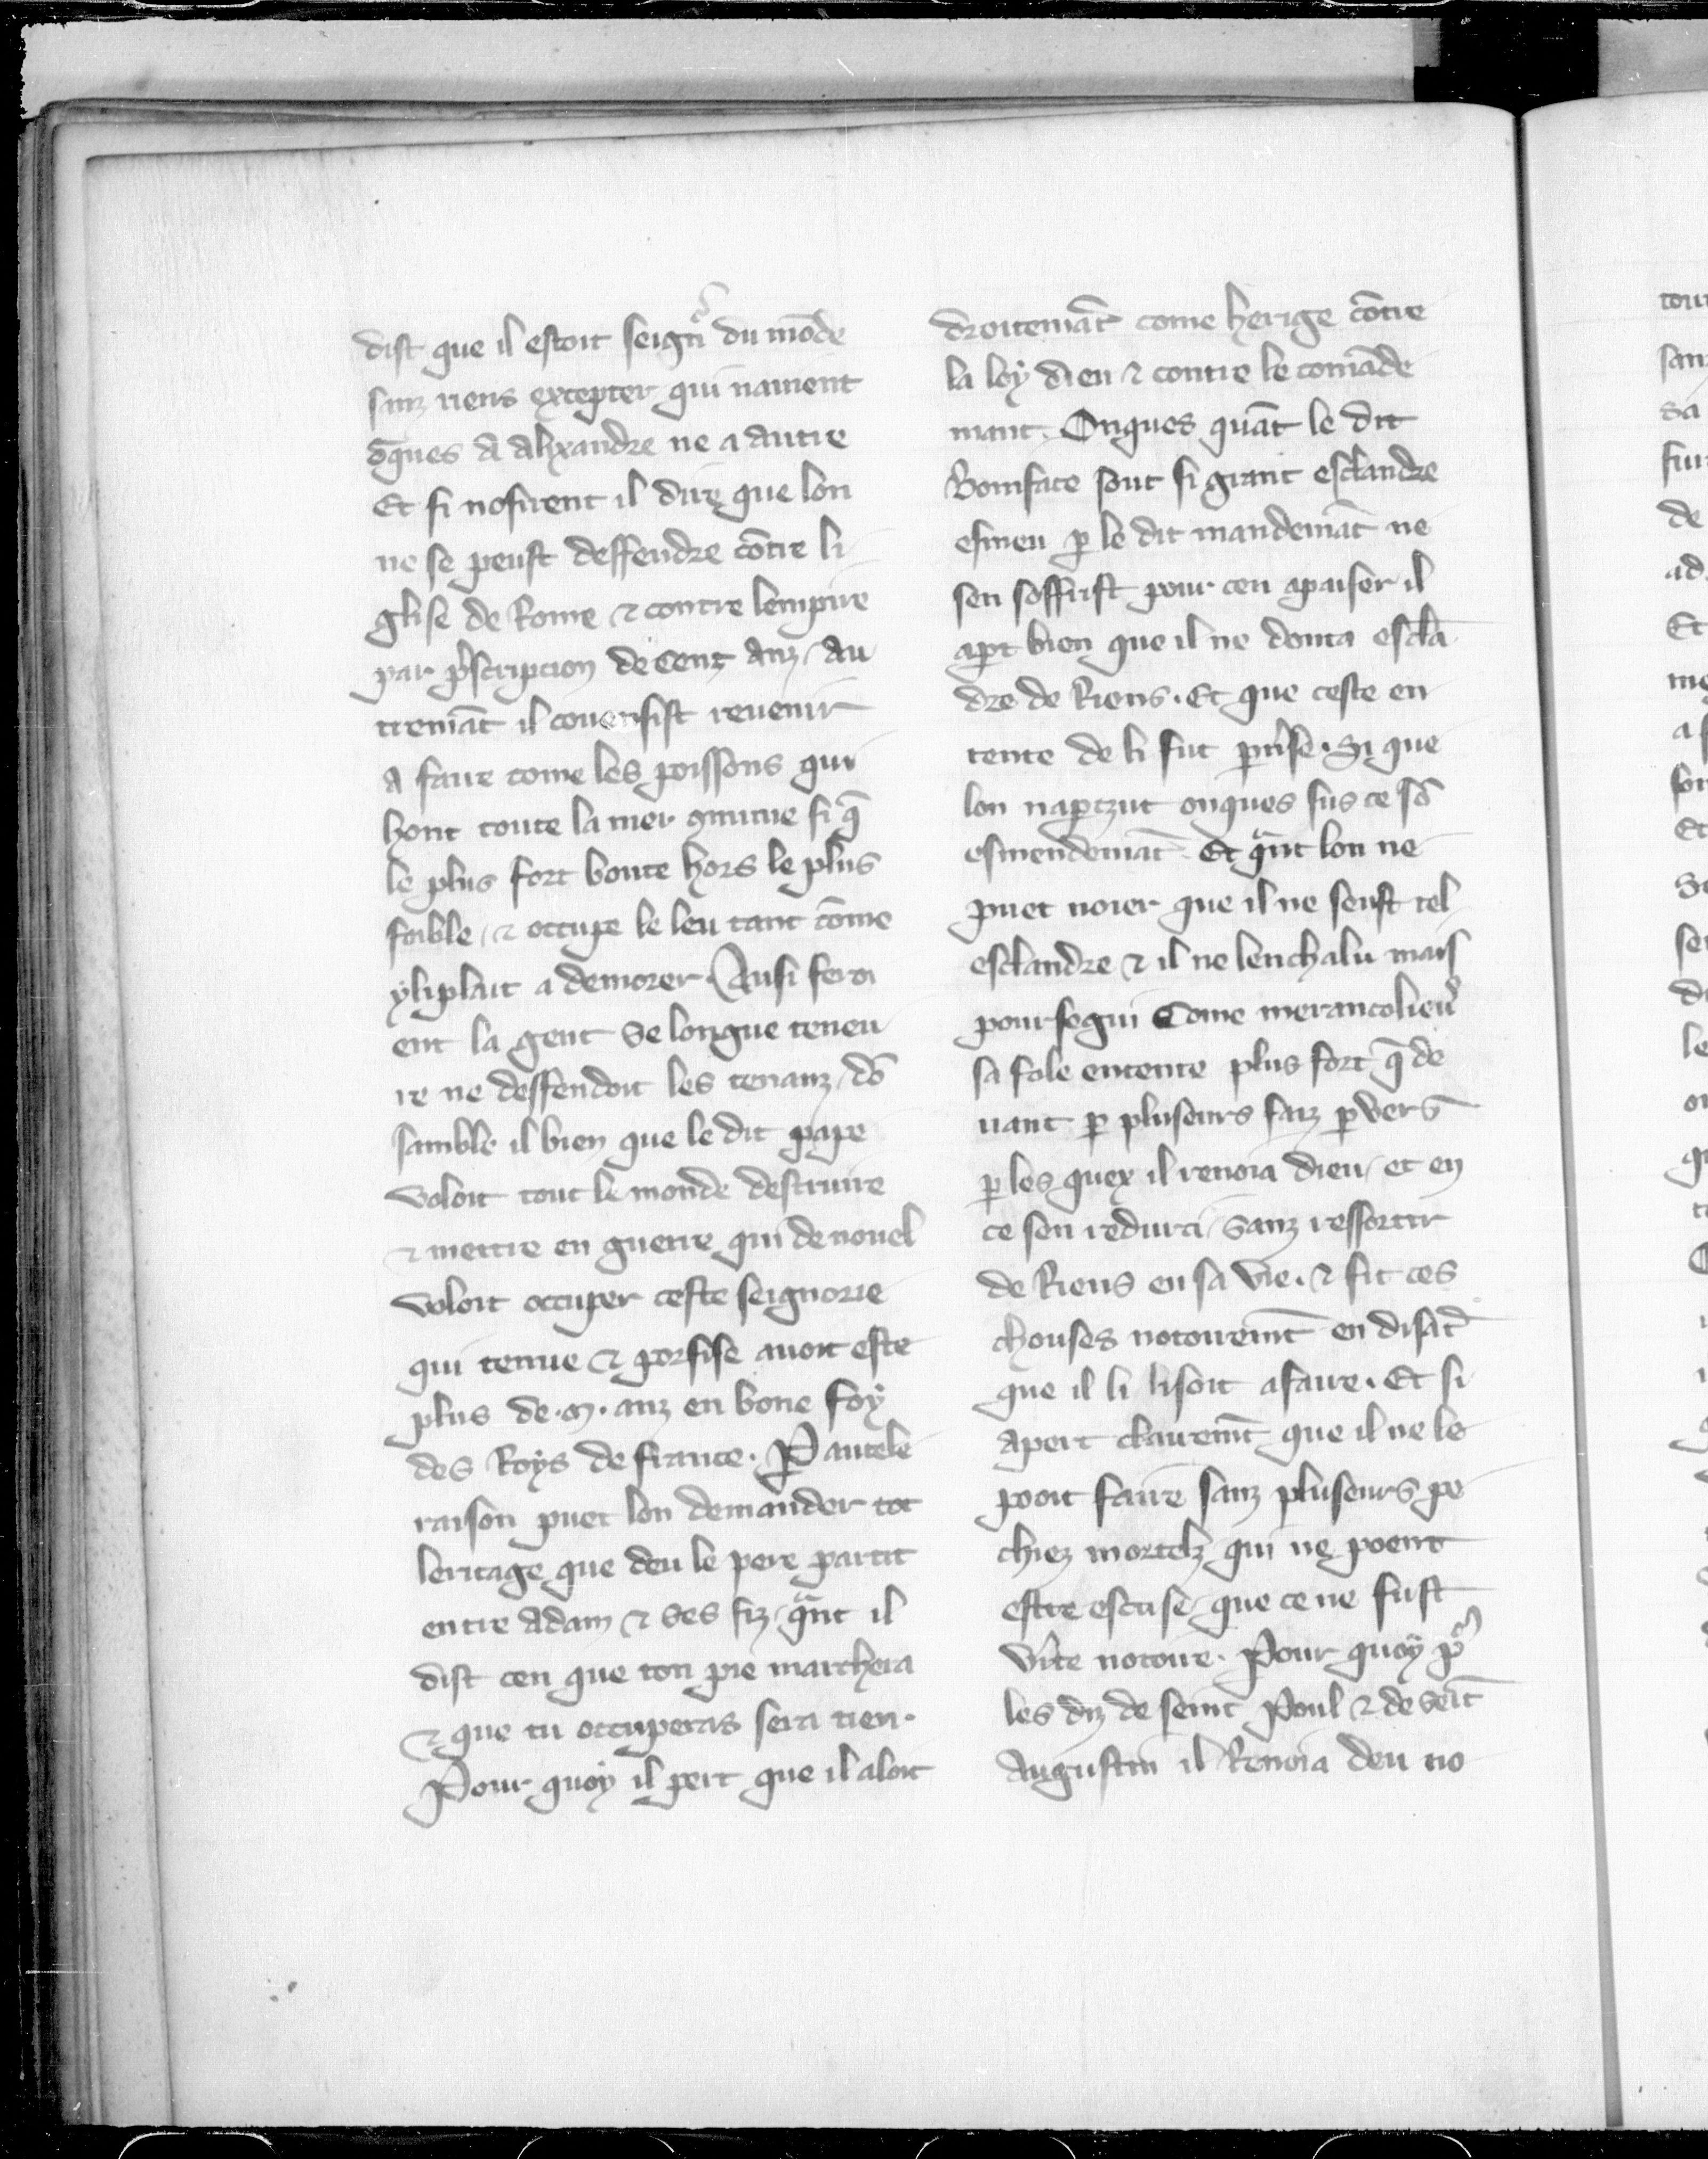 dist que il estoit seignr̃ du mōde
sanz riens excepter qui navient
ōques a alixandre ne a autre
Et si nosirent il dire que lon
ne se peust deffendre cōtre li
glise de Rome ⁊ contre lempire
par p̄scripcion de cent anz / au
tremāt il covensist revenir
a faire come les poissons qui
hont toute la mer si q̄
le plus fort boute hors le plus
foible / ⁊ occupe le leu tant cōme
yliplait a demorer. Ausi feroi
ent la gent se longue teneu
re ne deffendoit les tenanz / dō
samble il bien que le dit pape
voloit tout le monde destruire
⁊ mettre en guerre qui de nouel
voloit occuper ceste seignorie
qui tenue ⁊ porsise avoit este
plus de .m. anz en bone foy
des Roys de france. P autele
raison puet lon demander tot
leritage que deu le pere partit
entre Adam ⁊ ses fiz / qⁿnt il
dist cen que ton pie marchera
⁊ que tu occuperas sera tien.
Pour quoy il pert que il aloit
droitemāt come herige cōtre
la loy dieu ⁊ contre le comāde
mant. Onques quāt le dit
Boniface sout si grant esclandre
esmeu p̱ le dit mandemāt ne
sen soffrist pour cen apaiser il
ap̱t bien que il ne douta escla
dre de Riens. Et que ceste en
tente de li fut . Si que
lon nap̱tzut onques sus ce sō
esmendemāt. Et qⁿnt lon ne
puet noier que il ne seust tel
esclandre ⁊ il ne lenchalu mais
poursegui Come merancolieus
sa fole entente plus fort q̄ de
vant p̱ pluseurs faiz p̱vers
p̱ les quex il renoia dieu / et en
ce sen redurci / sanz ressortir
de Riens en sa vie. ⁊ fit ces
chouses notoiremt̄ en disāt
que il li lisoit afaire. Et si
apert clairemt̄ que il ne le
pooit faire sanz pluseurs pe
chiez mortelz qui ne poent
estre escuse / que ce ne fust
v̓ite notoire. Pour quoy p̱
les diz de seint Poul ⁊ de seīt
Augustin il Renoia deu no